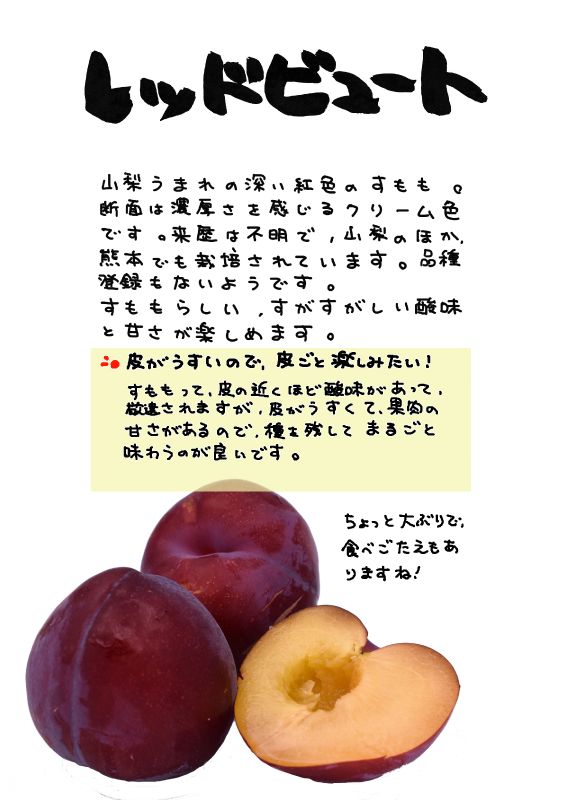 レッドビュート
山梨うまれの深い紅色のすもも。
断面は濃厚さを感じるクリーム色
です。来歴は不明で,山梨のほか,
熊本でも栽培されています。品種
登録もないようです。
すももらしい,すがすがしい酸味
と甘さが楽しめます。
皮がうすいので,皮ごと楽しみたい!
すももって,皮の近くほど酸味があって,
敬遠されますが,皮がうすくて,果肉の
甘さがあるので,種を残して まるごと
味わうのが良いです。
ちょっと大ぶりで,
食べごたえもあ
りますね!